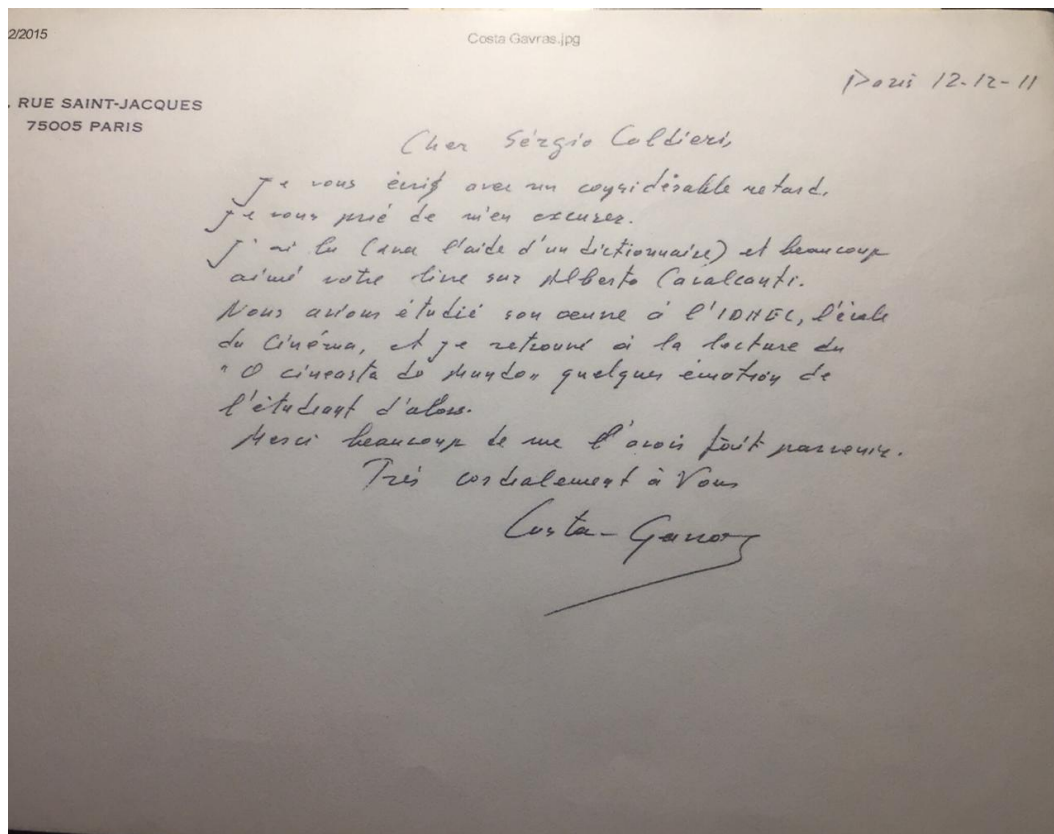 2/2015
Costa Gavras.jpg
Paris 12-12-11
. RUE SAINT-JACQUES
75005 PARIS
Cher Sérgio Caldieri,
Je vous écris avec un considérable retard.
Je vous prie de m'en excuser.
J'ai lu (avec l'aide d'un dictionnaire) et beaucoup
aimé votre livre sur Alberto Cavalcanti.
Nous avions étudié son œuvre à l'IDHEC, l'école
du Cinéma, et je retrouvé à la lecture du
"O cineasta do Mundo" quelques émotion de
l'étudiant d'alors.
Merci beaucoup de me l'avoir fait parvenir.
Très cordialement à Vous
Costa-Gavras